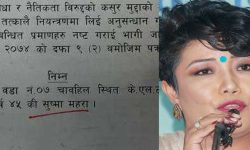 धा र नैतिकता विरुद्धको कसुर मुद्दाको
तत्कालै नियन्त्रणमा लिई अनुसन्धान ग
बन्धित प्रमाणहरु नष्ट गराई भागी जा
२०७४ को दफा ९ (२) वमोजिम पत्र
निम्न
वडा नं.०७ चावहिल स्थित के.एल.
र्ष ४५ की सुष्मा महरा।